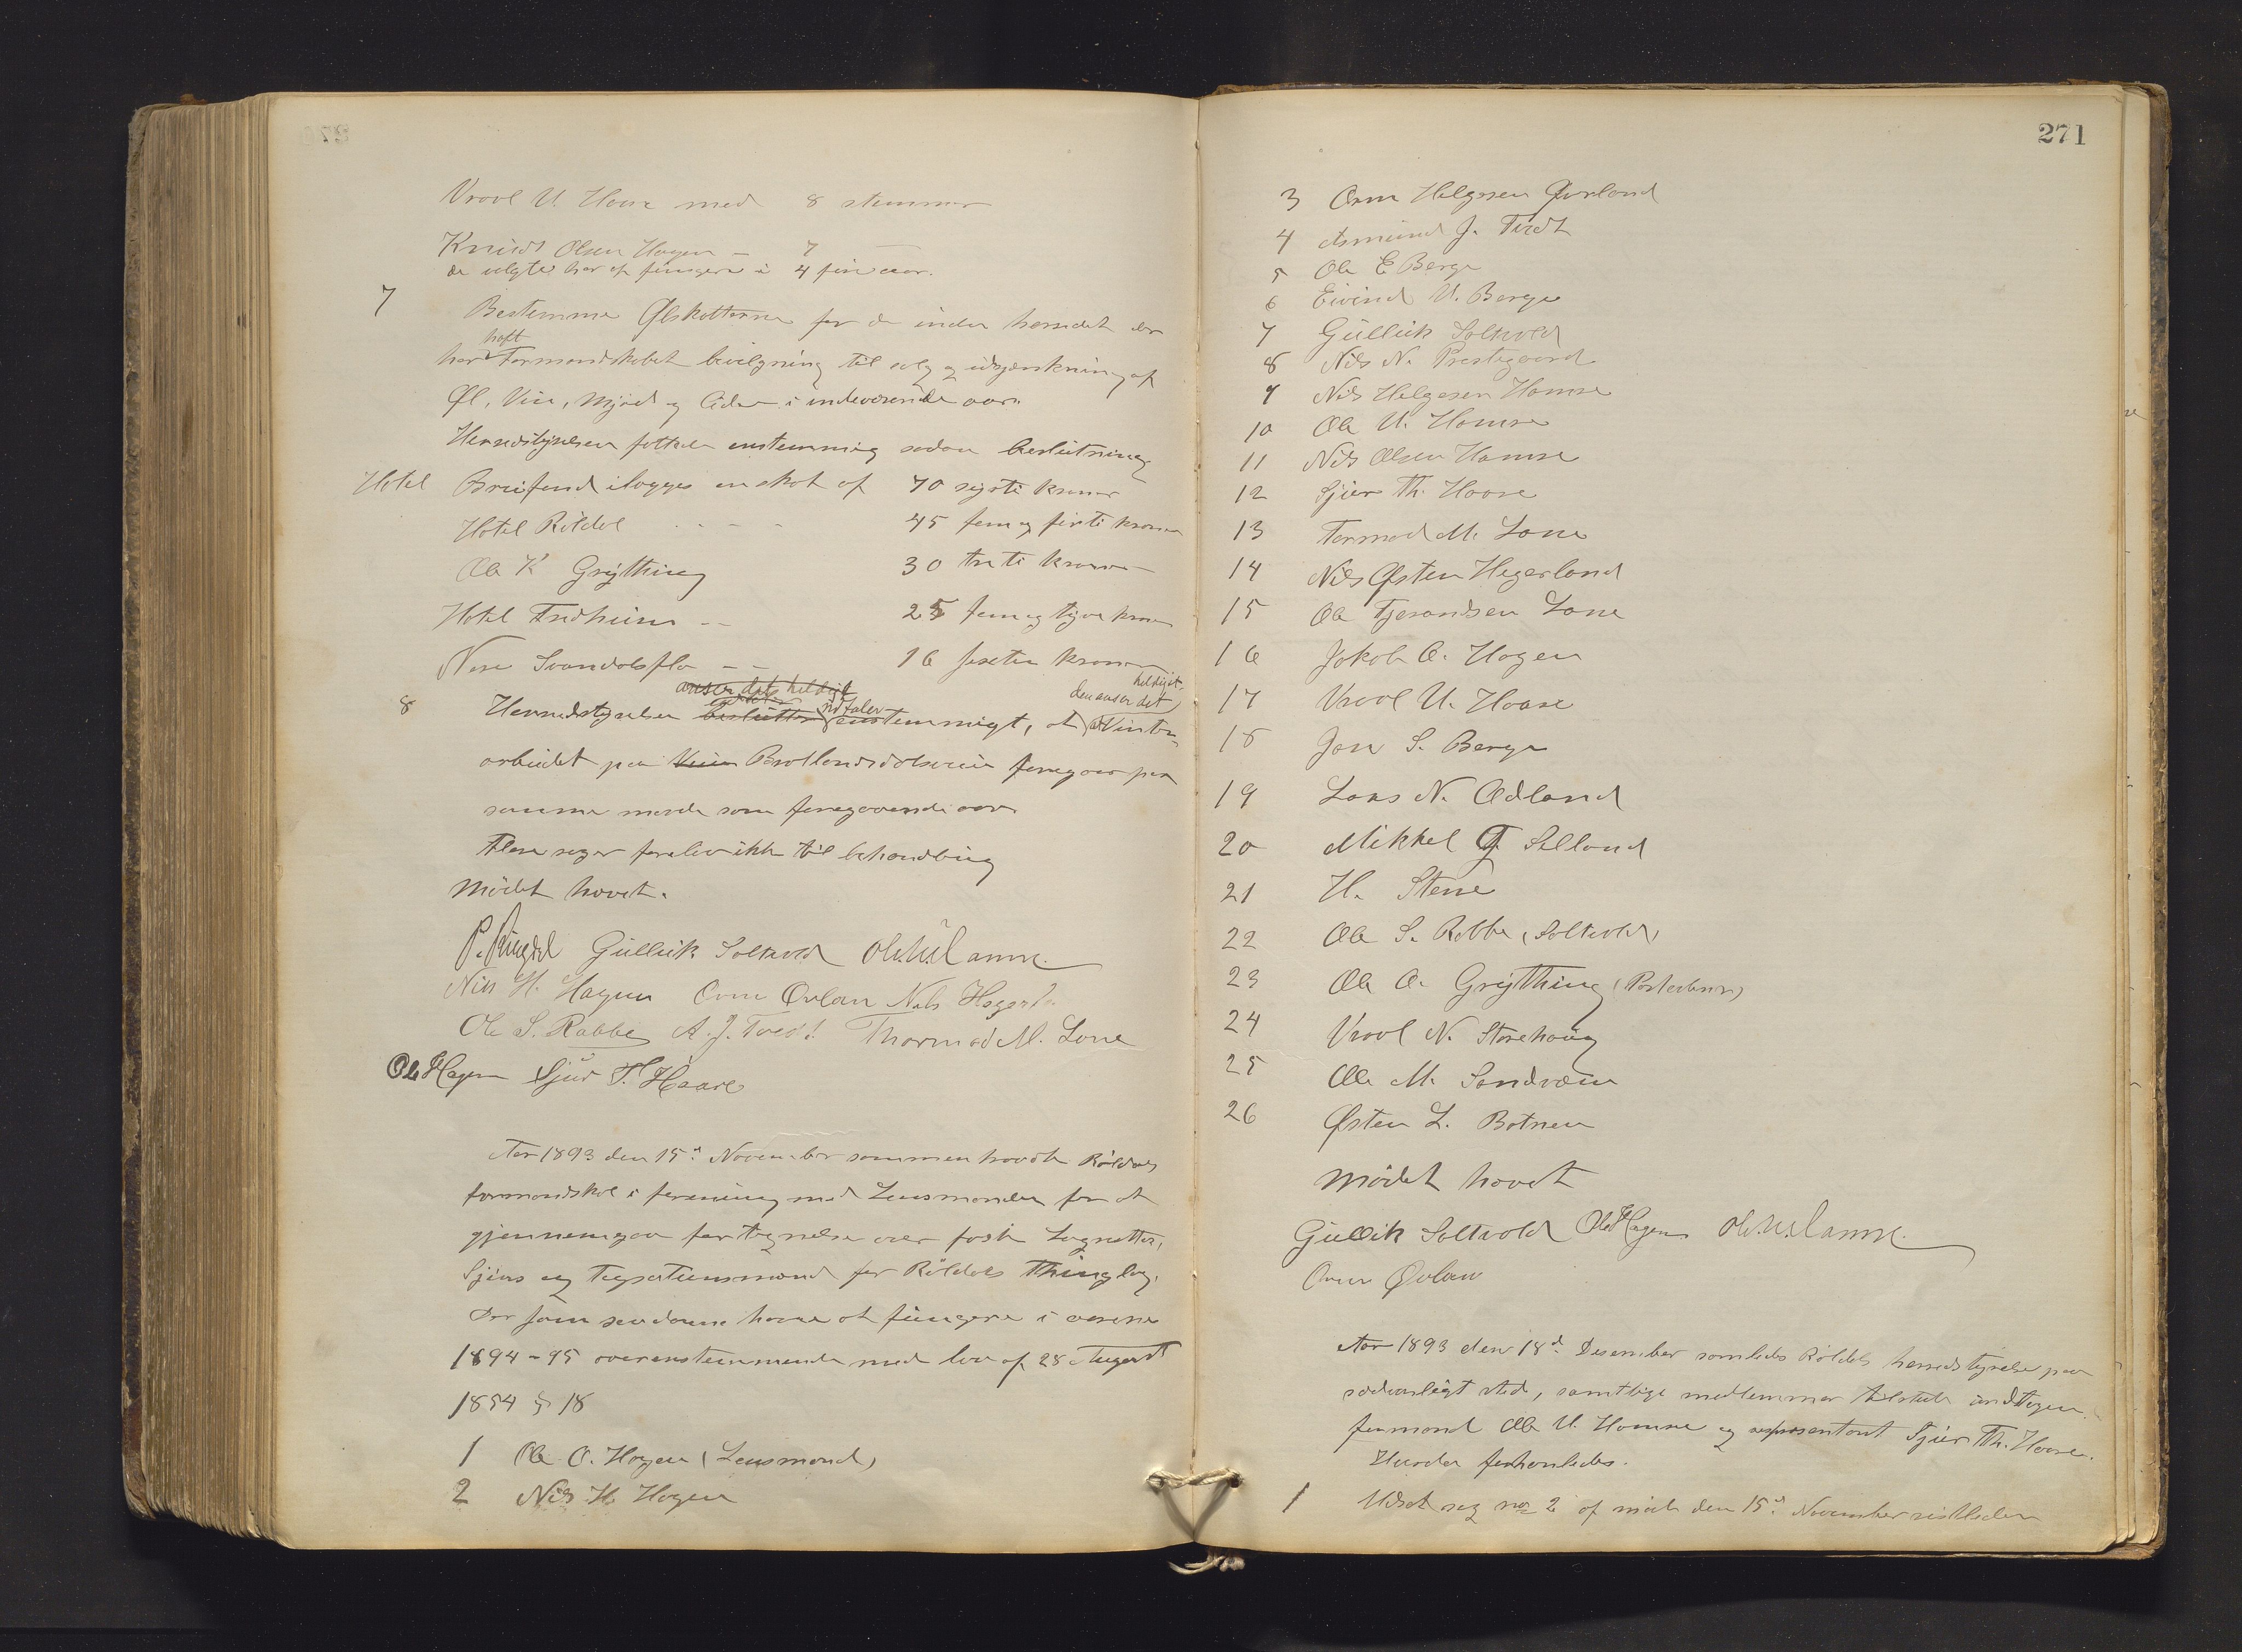 Vraal U. Haare med 8 stemmer
Knudt Olsen Hagen – 7 —
de valgte har at fungere i 4 fire aar.
7 Bestemme Ølskatterne for de inden herredet der
har haft Formandskabet bevilgning til salg og udsjænkning af
Øl, Vin, Mjød og Cider i indeværende aar.
Herredstyrelsen fattede enstemmig sadan beslutning
Hotel Breifond ilægges en skat af 70 sytti kroner
Hotel Röldal - - - - 45 fem og firti kroner
Ole K Grÿtting 30 tretti kroner
Hotel Fredheim - - 25 fem og tyve kroner
Nese Svandalsflo - - 16 sexten kroner
anser det heldigt
den anser det heldigt
8 Herredstyrelsen beslutter udtaler enstemmigt, at at Vinter-
arbeidet paa Veien Brotlandsdalsveien foregaar paa
samme maade som foregaaende aar
Flere sager forelaa ikke til behandling
Mödet hævet.
P. Ringdal Gullik Soltvold Ole U. Hamre.
Nils H. Hagen Orm Øvlan Nils Hegerla
Ole S. Rabbe A. J. Tvedt Thormod M. Lone
Ole Hagen Sjur T. Haare
Aar 1893 den 15d November sammentraadte Röldals
formandskab i forening med Lensmanden for at
gjennemgaa fortegnelse over faste Lagretter,
Sjøns og Taxationsmænd for Röldals Thinglag.
der som saadanne haver at fungere i aarene
1894-95 overensstemmende med lov af 28 August
1854 § 18
1 Ole O. Hagen (Lensmand)
2 Nils H. Hagen
271
3 Orm Helgesen Øvrland
4 Asmund J. Tvedt
5 Ole E Berge
6 Eivind V. Berge
7 Gullik Soltvold
8 Nils N. Prestegaard
9 Nils Helgesen Hamre
10 Ole U. Hamre
11 Nils Olsen Hamre
12 Sjur Th. Haare
13 Tormod M. Lone
14 Nils Østen Hegerland
15 Ole Tjerandsen Lone
16 Jakob O. Hagen
17 Vraal U. Haare
18 Jon S. Berge
19 Lars N. Ødland
20 Mikkel G. Selland
21 H. Stene
22 Ole S. Rabbe (Soltvold)
23 Ole O. Grÿtting
24 Vraal N. Storehaug
25 Ole M. Sandvæn
26 Østen L. Botnen
Mödet hævet
Gullik Soltvold Ole Hagen Ole U. Hamre.
Orm Øvlan
Aar 1893 den 18d Desember samledes Röldals herredstyrelse paa
sædvanligt sted, samtlige medlemmer tilstede undtagen
formand Ole U. Hamre og representant Sjur Th. Haare.
Hvorda forhanledes.
1 Udsat sag no 2 af møde den 15d November sistleden